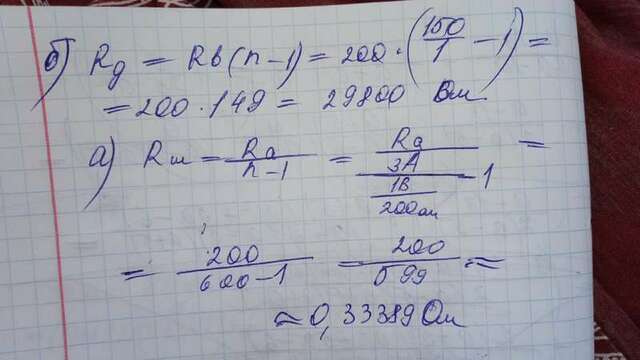 б) Rд = Rв(n-1) = 200 · (150/1 - 1) =
= 200 · 149 = 29800 Ом
а) Rш = Rа/n-1 = Rа/(3А/(1В/200ом) - 1) =
= 200/600-1 = 200/599 ≈
≈ 0,33389 Ом